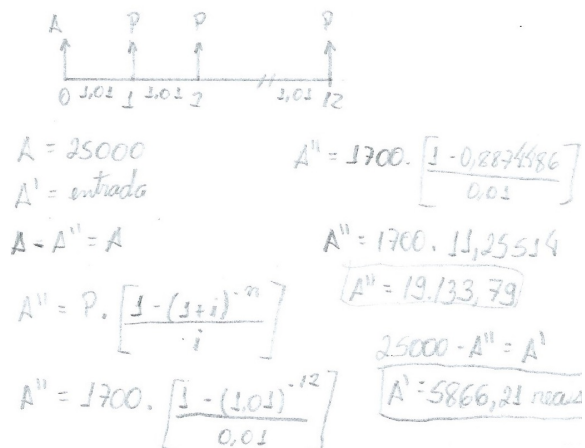 A P P P
0 1,01 1 1,01 2 // 1,01 12
A = 25000
A' = entrada
A - A'' = A
A'' = P. [1 - (1+i)^-n / i]
A'' = 1700. [1 - (1,01)^-12 / 0,01]
A'' = 1700. [1 - 0,8874486 / 0,01]
A'' = 1700. 11,25514
A'' = 19.133,79
25000 - A'' = A'
A' = 5866,21 reais